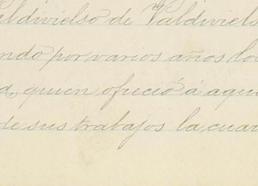 Valdivielso de Valdiviels
ndo por varios años los
a, quien ofreció á aqu
de sus trabajos la cuar